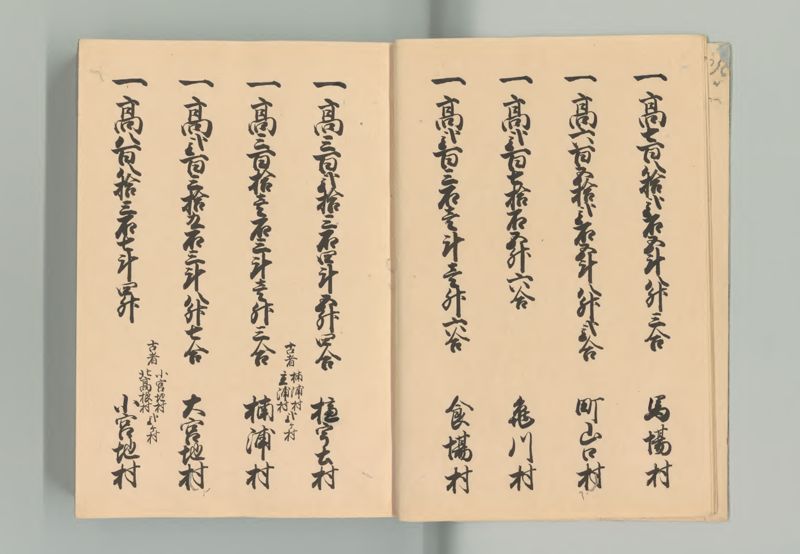 一高七百八拾弐石五斗八升三合 馬場村
一高六百五拾弐石五斗八升弐合 町山口村
一高弐百七拾石五升六合 亀川村
一高弐百三石壱斗壱升六合 食場村
一高三百弐拾三石四斗五升四合 村
一高三百拾壱石三斗壱升三合 楠浦村
古者 楠浦村 立浦村 弐ケ村
一高弐百三拾五石三斗八升七合 大宮地村
一高八百八拾三石七斗四升 小宮地村
古者 小宮地村 北高根村 弐ケ村